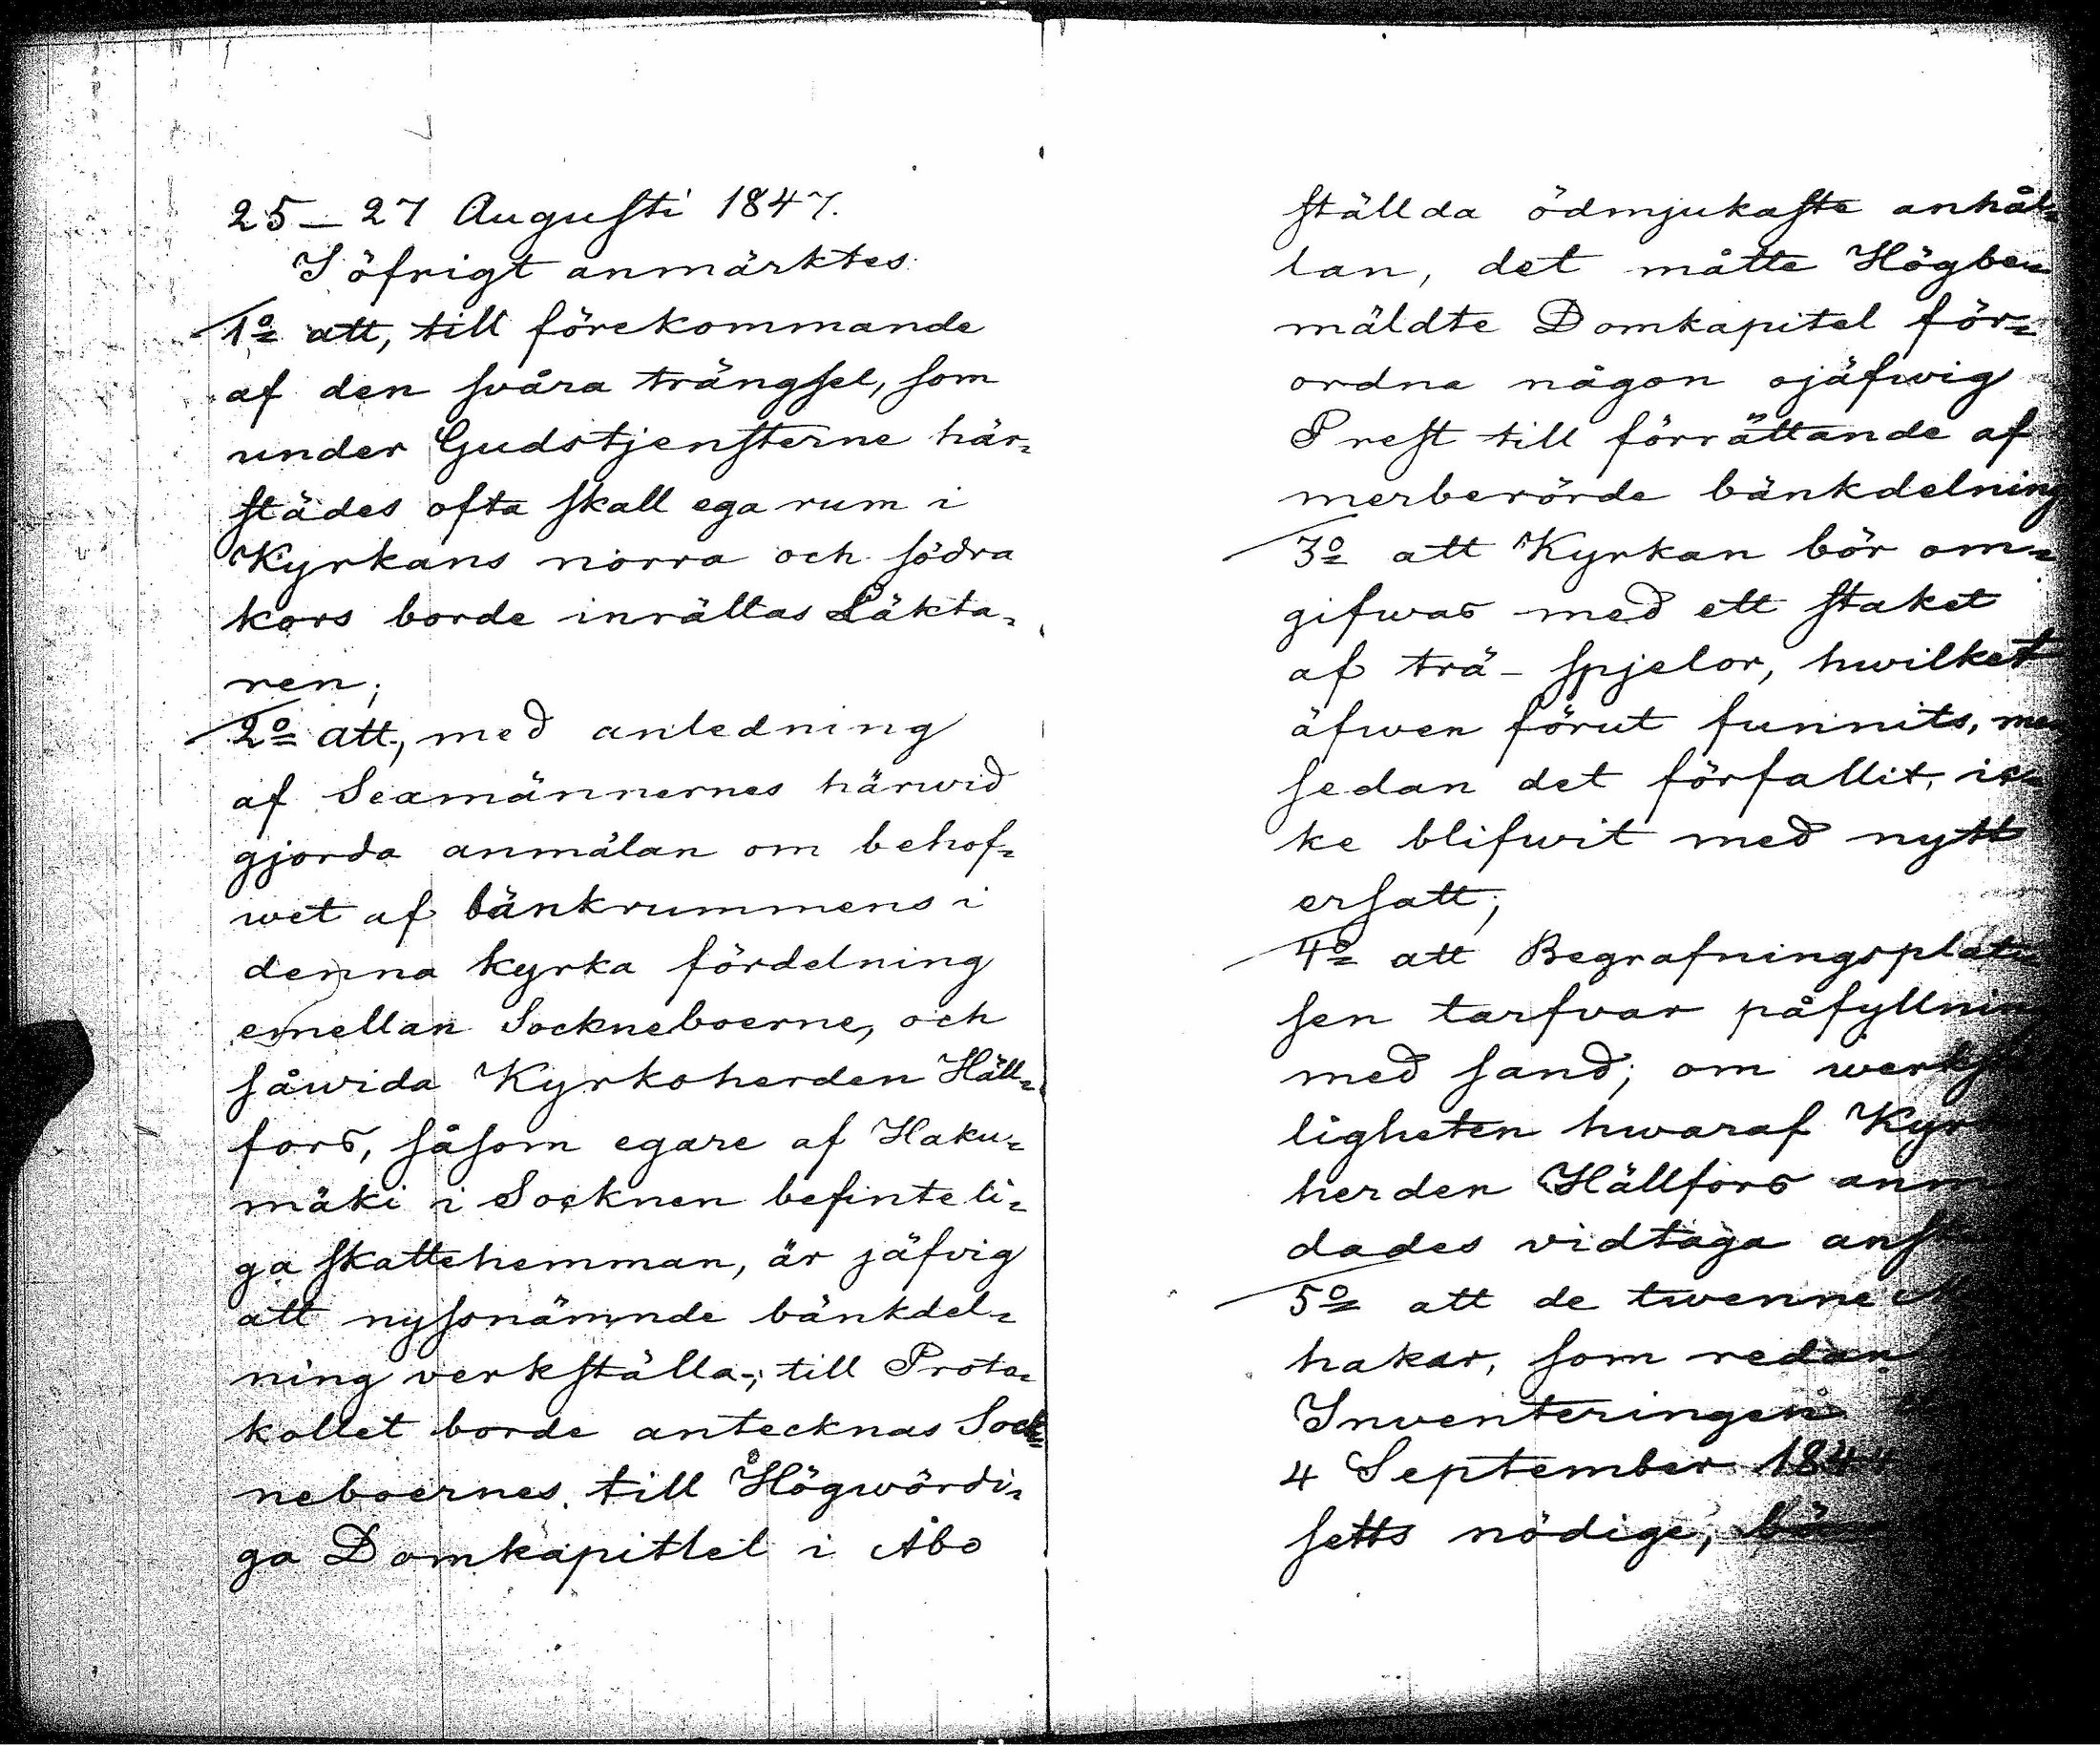 25 – 27 Augusti 1847.
I öfrigt anmärktes
1º att, till förekommande
af den svåra trängsel, som
under Gudstjensterne här=
städes ofta skall ega rum i
Kyrkans norra och södra
kors borde inrättas Läkta=
ren;
2º att, med anledning
af Sexmännernes härwid
gjorda anmälan om behof=
wet af bänkrummens i
denna kyrka fördelning
emellan Sockneboerne, och
såwida Kyrkoherden Häll=
fors, såsom egare af Haku=
mäki i Socknen befinteli=
ga skattehemman, är jäfvig
att nyssnämnde bänkdel=
ning verkställa; till Proto=
kollet borde antecknas Sock=
neboernes till Högwördi=
ga Domkapitlet i Åbo
ställda ödmjukaste anhål=
lan, det måtte Högbe=
mäldte Domkapitel för=
ordna någon ojäfwig
Prest till förrättande af
merberörde bänkdelning
3º att Kyrkan bör om=
gifwas med ett staket
af trä-spjelor, hwilket
äfwen förut funnits, men
sedan det förfallit, ic=
ke blifwit med nytt
ersatt;
4º att Begrafningsplat=
sen tarfvar påfyllning
med sand; om
ligheten hwaraf
herden Hällfors
dades vidtaga
5º att de twenne
hakar, som redan
Inventeringen
4 September 1844
setts nödige,